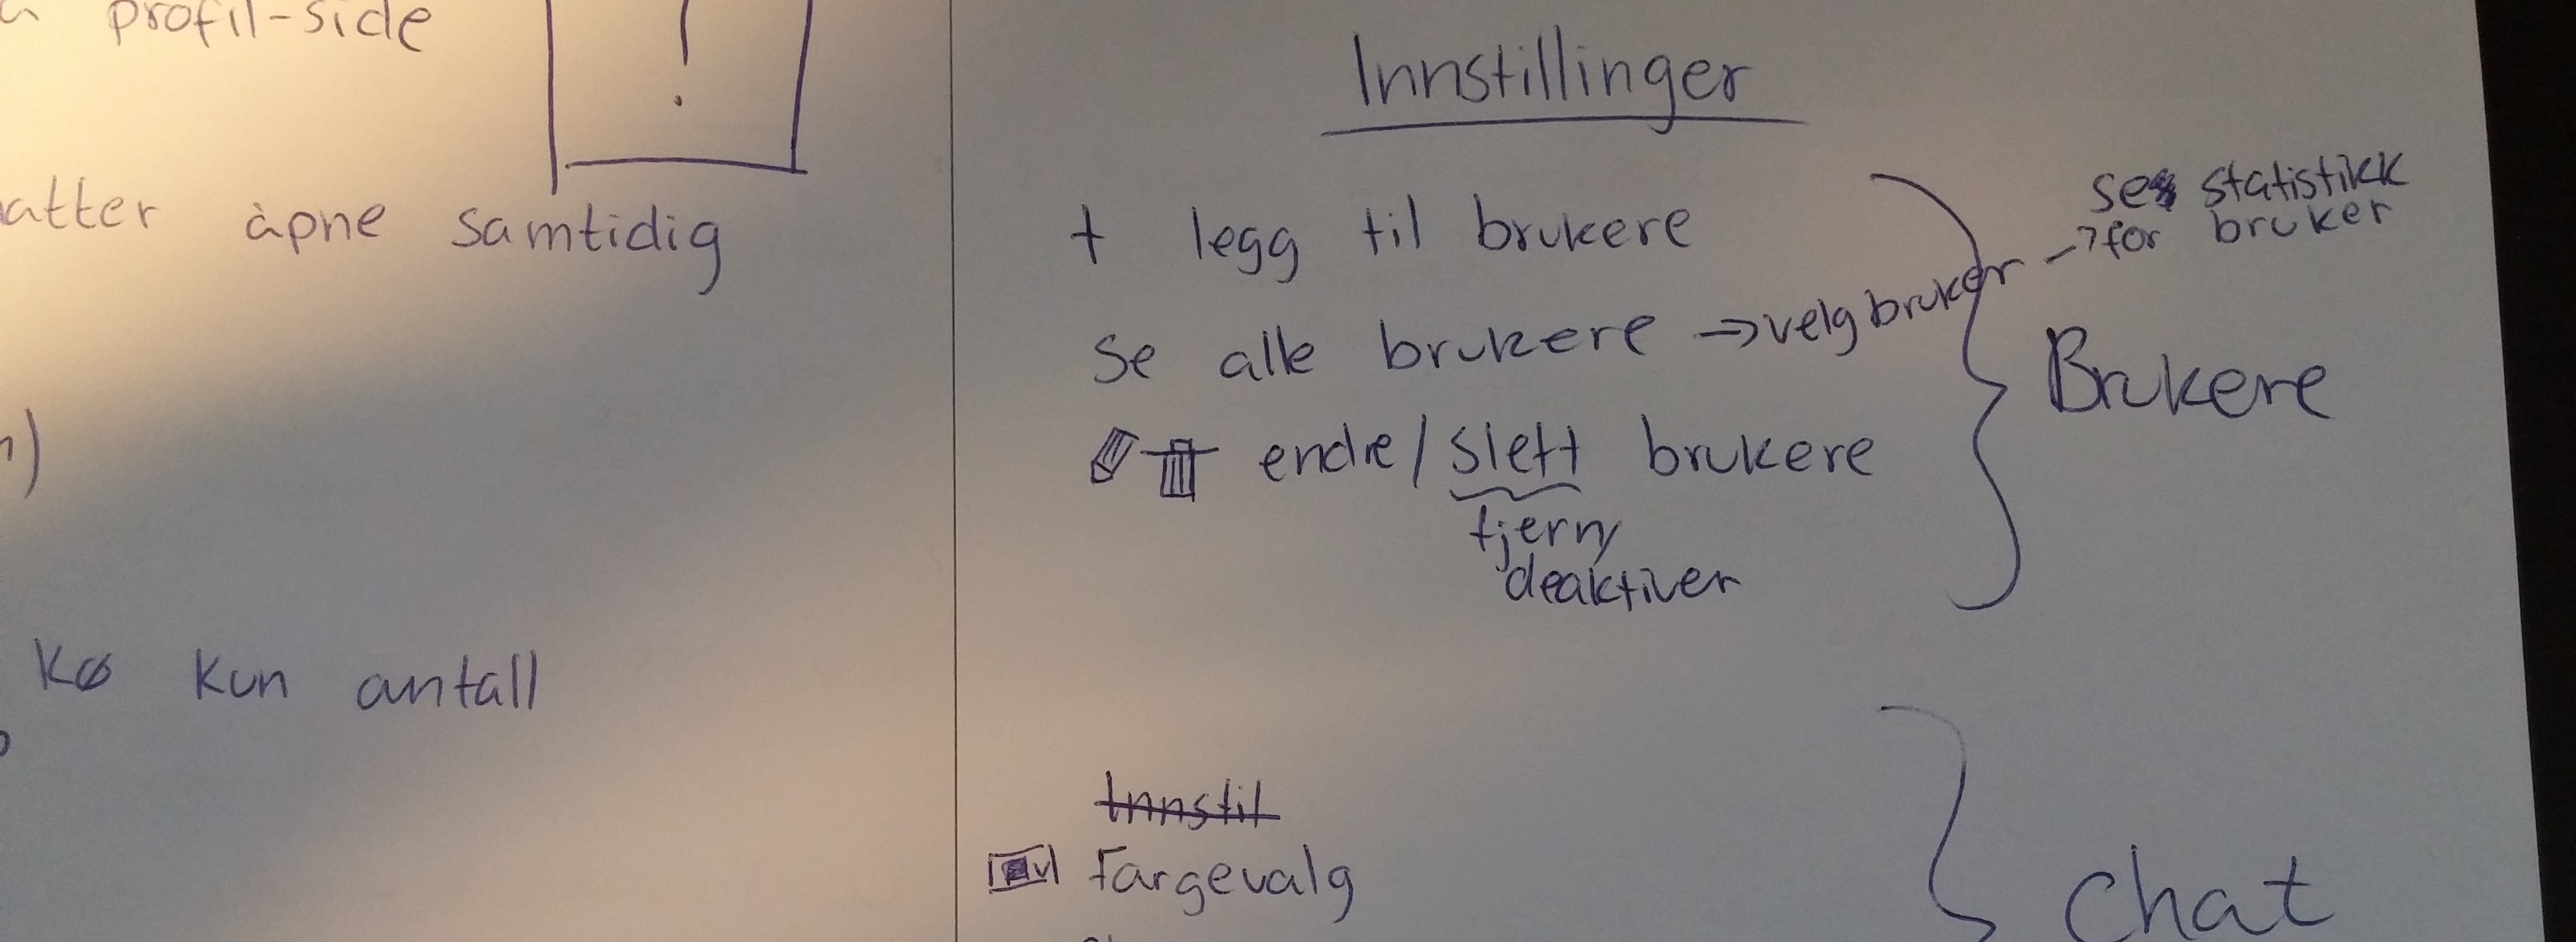 profil-side
!
atter åpne samtidig
kø kun antall
Innstillinger
+ legg til brukere
se alle brukere → velg bruker → se statistikk
for bruker
endre/slett brukere
fjern/
deaktiver
Brukere
Innstil
Fargevalg
Chat